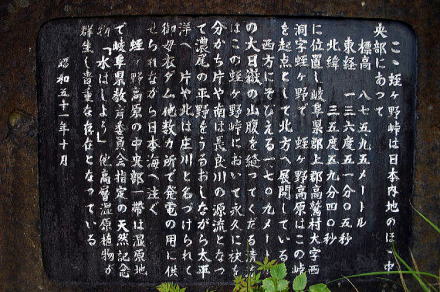 ここ蛭ヶ野峠は日本内地のほゞ中
央部にあって
標高　八七五、九五メートル
東経　一三六度五一分〇五秒
北緯　三五度五九分四〇秒
に位置し岐阜県郡上郡高鷲村大字西
洞字蛭ヶ野で　蛭ヶ野高原はこの峠
を起点として北方へ展開している
西方にそびえる一七〇九メー
の大日嶽の山腹を縫ってくだる清
はこの蛭ヶ野峠において永久に袂を
分かち片や南は長良川の源流となっ
て濃尾の平野をうるおしながら太平
洋へ　片や北は庄川と名づけられて
御母衣ダム他数カ所で発電の用に供
せられながら日本海へ注ぐ
蛭ヶ野高原の中央部一帯は湿原地
で岐阜県教育委員会指定の天然記念
物「水ばしょう」他高層湿原植物が
群生し貴重な存在となっている
昭和五十一年十月